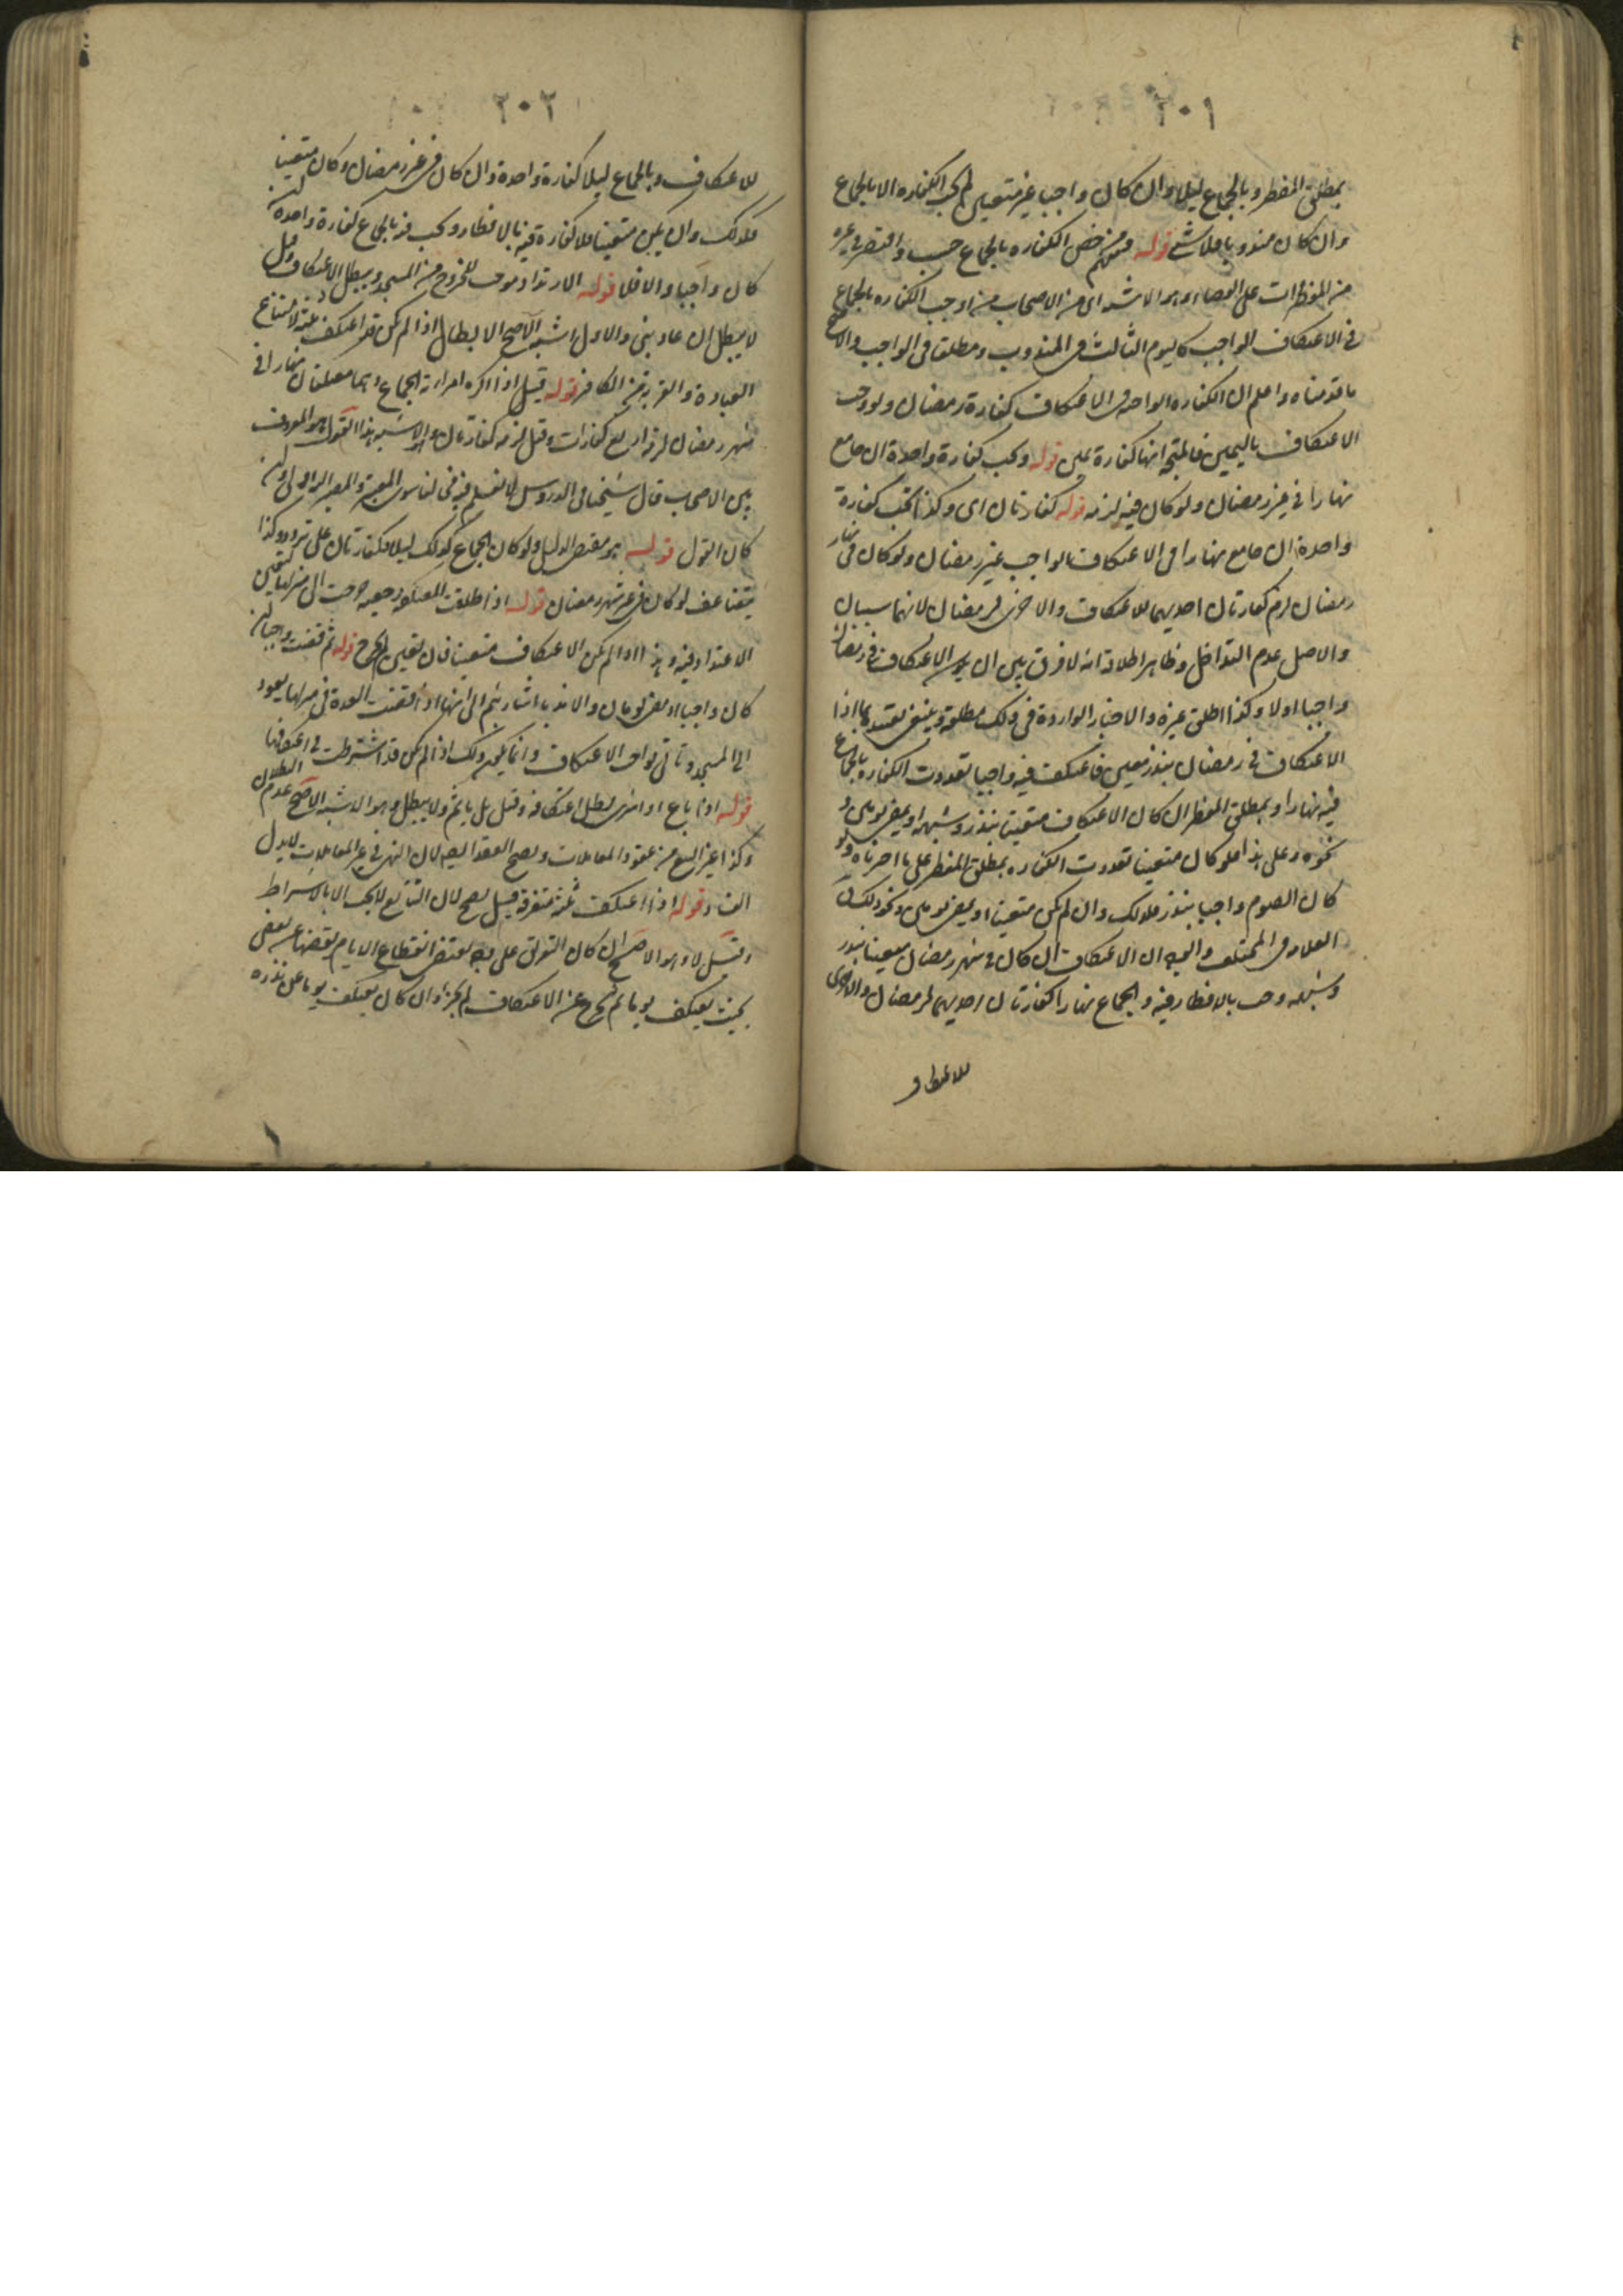 ٢٠١
بمطلق المفطر وبالجماع ليلا وان كان واجبا غير متعين لم تجب الكفاره الا بالجماع
وان كان مندوبا فلا شئ قوله ومنهم من خص الكفاره بالجماع حسب واقتصر في غيره
من المفطرات على القضاء وهو الاشبه اى من الاصحاب من اوجب الكفاره بالجماع
في الاعتكاف الواجب كاليوم الثالث في المندوب ومطلقا في الواجب والاصح
ما قدمناه واعلم ان الكفاره الواحده في الاعتكاف كفارة رمضان ولو وجب
الاعتكاف باليمين فالمتجه انها كفارة يمين قوله وتجب كفارة واحدة ان جامع
نهارا في غير رمضان ولو كان فيه لزمه قوله كفارتان اى وكذا تجب كفارة
واحدة ان جامع نهارا في الاعتكاف الواجب غير رمضان ولو كان في نهار
رمضان لزم كفارتان احديهما للاعتكاف والاخرى لرمضان لانهما سببان
والاصل عدم التداخل وظاهر اطلاقه انه لا فرق بين ان يكون الاعتكاف في رمضان
واجبا اولا وكذا اطلق غيره والاخبار الواردة في ذلك مطلقة وينبغي تقييدها بما اذا
الاعتكاف في رمضان بنذر معين فاعتكف فيه واجبا تعددت الكفاره بالجماع
فيه نهارا وبمطلق المفطر ان كان الاعتكاف متعينا بنذر وشبهه او بمضي يومين و
نحوه وعلى هذا فلو كان متعينا تعددت الكفاره بمطلق المفطر على ما اخترناه ولو
كان الصوم واجبا بنذر فكذلك وان لم يكن متعينا او بمضي يومين ونحو ذلك
العلامه في المختلف والوجه ان الاعتكاف ان كان في شهر رمضان معينا بنذر
وشبهه وجب بالافطار فيه والجماع نهارا كفارتان احديهما لرمضان والاخرى
للاعتكاف
٢٠٢
للاعتكاف وبالجماع ليلا كفارة واحدة وان كان في غير رمضان وكان متعينا
فكذلك وان لم يكن متعينا فلا كفارة فيه بالافطار وتجب فيه بالجماع كفارة واحدة ان
كان واجبا والا فلا قوله الارتداد موجب للخروج من المسجد ويبطل الاعتكاف وقيل
لا يبطل ان عاد بنى والاول اشبه الاصح الابطال اذا لم يكن قد اعتكف ثلثة لامتناع
العبادة والقربة من الكافر قوله قيل اذا اكره امراته على الجماع وهما معتكفان نهارا في
شهر رمضان لزمه اربع كفارات وقيل لزمه كفارتان وهو الاشبه هذا القول هو المعروف
بين الاصحاب قال شيخنا في الدروس لا نعلم فيه مخالفا سوى المعتبر
كان القول قوله هو مقتضى الدليل ولو كان الجماع كذلك ليلا فكفارتان على تردد وكذا
يتضاعف لو كان في غير شهر رمضان قوله اذا طلقت المعتكفة رجعية خرجت الى منزلها لتعين
الاعتداد فيه وهذا اذا لم يكن الاعتكاف متعينا فان تعين لم تخرج قوله ثم قضت واجبا ان
كان واجبا او مضى يومان والا ندبا اشار بثم الى انها اذا قضت العدة في منزلها يعود
الى المسجد وتاتي بواجب الاعتكاف وانما يجب ذلك اذا لم يكن قد اشترطت في اعتكافها
قوله اذا باع او اشترى بطل اعتكافه وقيل بل ياثم ولا يبطل وهو الاشبه الاصح عدم البطلان
وكذا غير البيع من عقود المعاملات ويصح العقد ايضا لان النهى في غير المعاملات لا يدل
الفساد قوله اذا اعتكف ثلثة متفرقة قيل يصح لان التتابع لا يجب الا بالاشتراط
وقيل لا وهو الاصح ان كان التفرق على وجه يقتضى انقطاع الايام بعضها عن بعض
بحيث يعتكف يوما ثم يخرج عن الاعتكاف لم يجز وان كان يعتكف يوما عن نذره